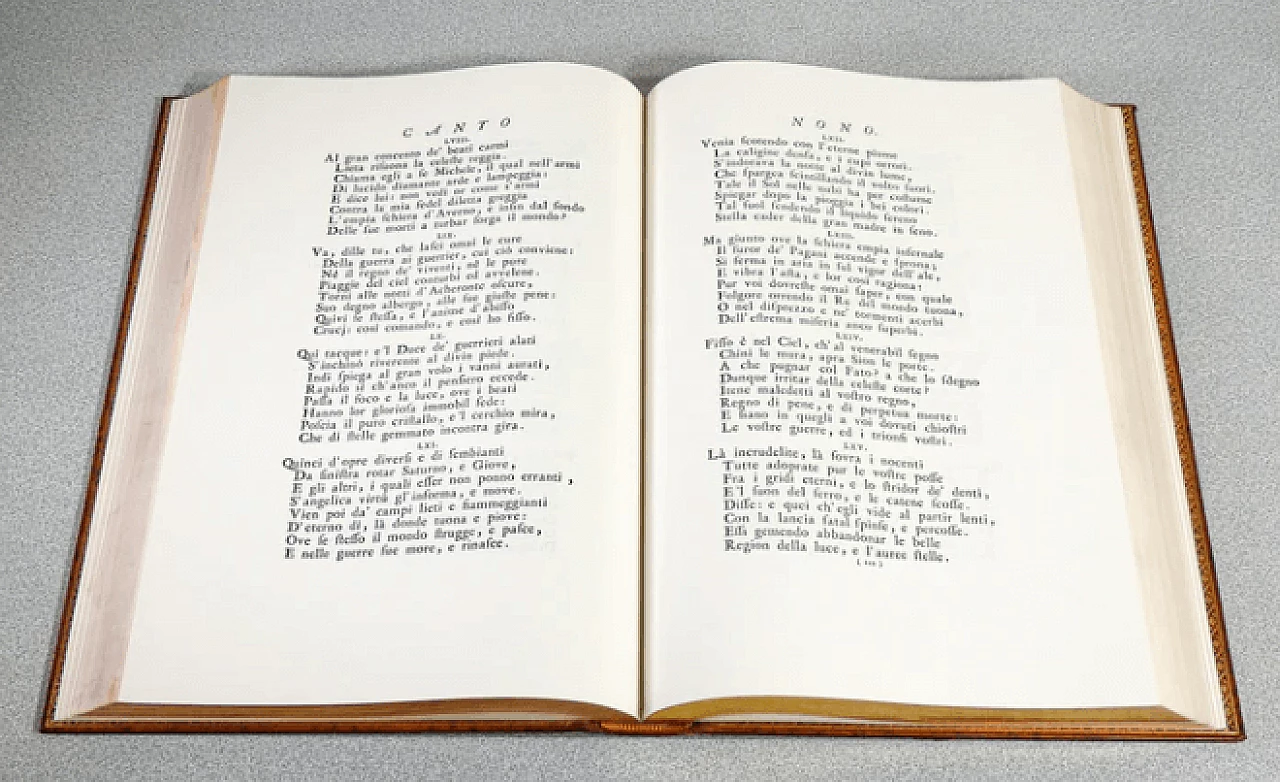 CANTO
LVIII.
Al gran concento de' beati carmi
Lieta risuona la celeste reggia.
Chiama egli a se Michele, il qual nell'armi
Di lucido diamante arde e lampeggia:
E dice lui: non vedi or come s'armi
Contra la mia fedel diletta greggia
L'empia schiera d'Averno, e insin dal fondo
Delle sue morti a turbar sorga il mondo?
LIX.
Va, dille tu, che lasci omai le cure
Della guerra ai guerrier, cui ciò conviene:
Nè il regno de' viventi, nè le pure
Piaggie del ciel conturbi ed avvelene.
Torni alle notti d'Acheronte oscure,
Suo degno albergo, alle sue giuste pene:
Quivi se stessa, e l'anime d'abisso
Crucj: così comando, e così ho fisso.
LX.
Qui tacque: e'l Duce de' guerrieri alati
S'inchinò riverente al divin piede.
Indi spiega al gran volo i vanni aurati,
Rapido sì ch'anco il pensiero eccede.
Passa il foco e la luce, ove i beati
Hanno lor gloriosa immobil sede:
Poscia il puro cristallo, e'l cerchio mira,
Che di stelle gemmato incontra gira.
LXI.
Quinci d'opre diversi e di sembianti
Da sinistra rotar Saturno, e Giove,
E gli altri, i quali esser non ponno erranti,
S'angelica virtù gl'informa, e move.
Vien poi da' campi lieti e fiammeggianti
D'eterno dì, là donde tuona e piove:
Ove se stesso il mondo strugge, e pasce,
E nelle guerre sue more, e rinasce.
NONO.
LXII.
Venia scotendo con l'eterne piume
La caligine densa, e i cupi orrori.
S'indorava la notte al divin lume,
Che spargea scintillando il volto fuori.
Tale il Sol nelle nubi ha per costume
Spiegar dopo la pioggia i bei colori.
Tal suol fendendo il liquido sereno
Stella cader della gran madre in seno.
LXIII.
Ma giunto ove la schiera empia infernale
Il furor de' Pagani accende e sprona;
Si ferma in aria in sul vigor dell'ale,
E vibra l'asta, e lor così ragiona:
Pur voi dovreste omai saper, con quale
Folgore orrendo il Re del mondo tuona,
O nel disprezzo e ne' tormenti acerbi
Dell'estrema miseria anco superbi.
LXIV.
Fisso è nel Ciel, ch'al venerabil segno
Chini le mura, apra Sion le porte.
A che pugnar col Fato? a che lo sdegno
Dunque irritar della celeste corte?
Itene maledetti al vostro regno,
Regno di pene, e di perpetua morte:
E siano in quegli a voi dovuti chiostri
Le vostre guerre, ed i trionfi vostri.
LXV.
Là incrudelite, là sovra i nocenti
Tutte adoprate pur le vostre posse
Fra i gridi eterni, e lo stridor de' denti,
E'l suon del ferro, e le catene scosse.
Disse: e quei ch'egli vide al partir lenti,
Con la lancia fatal spinse, e percosse.
Essi gemendo abbandonar le belle
Region della luce, e l'auree stelle.